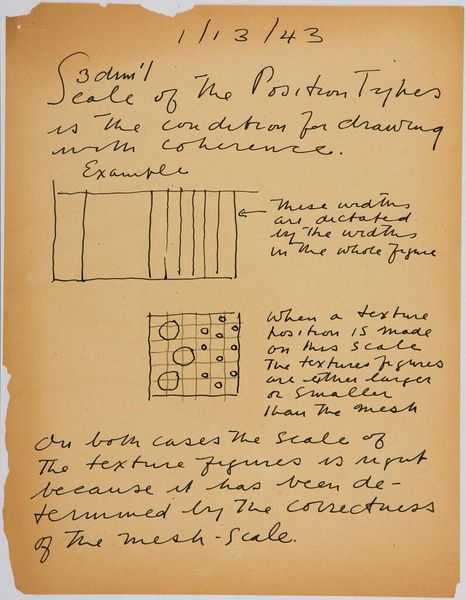 1/13/43
3dm'l
Scale of the Position Types
is the condition for drawing
with coherence.
Example
These widths
are dictated
by the widths
in the whole figure
When a texture
position is made
on this scale
The textures figures
are either larger
or smaller
than the mesh
In both cases the scale of
the texture figures is right
because it has been de-
termined by the correctness
of the mesh-scale.